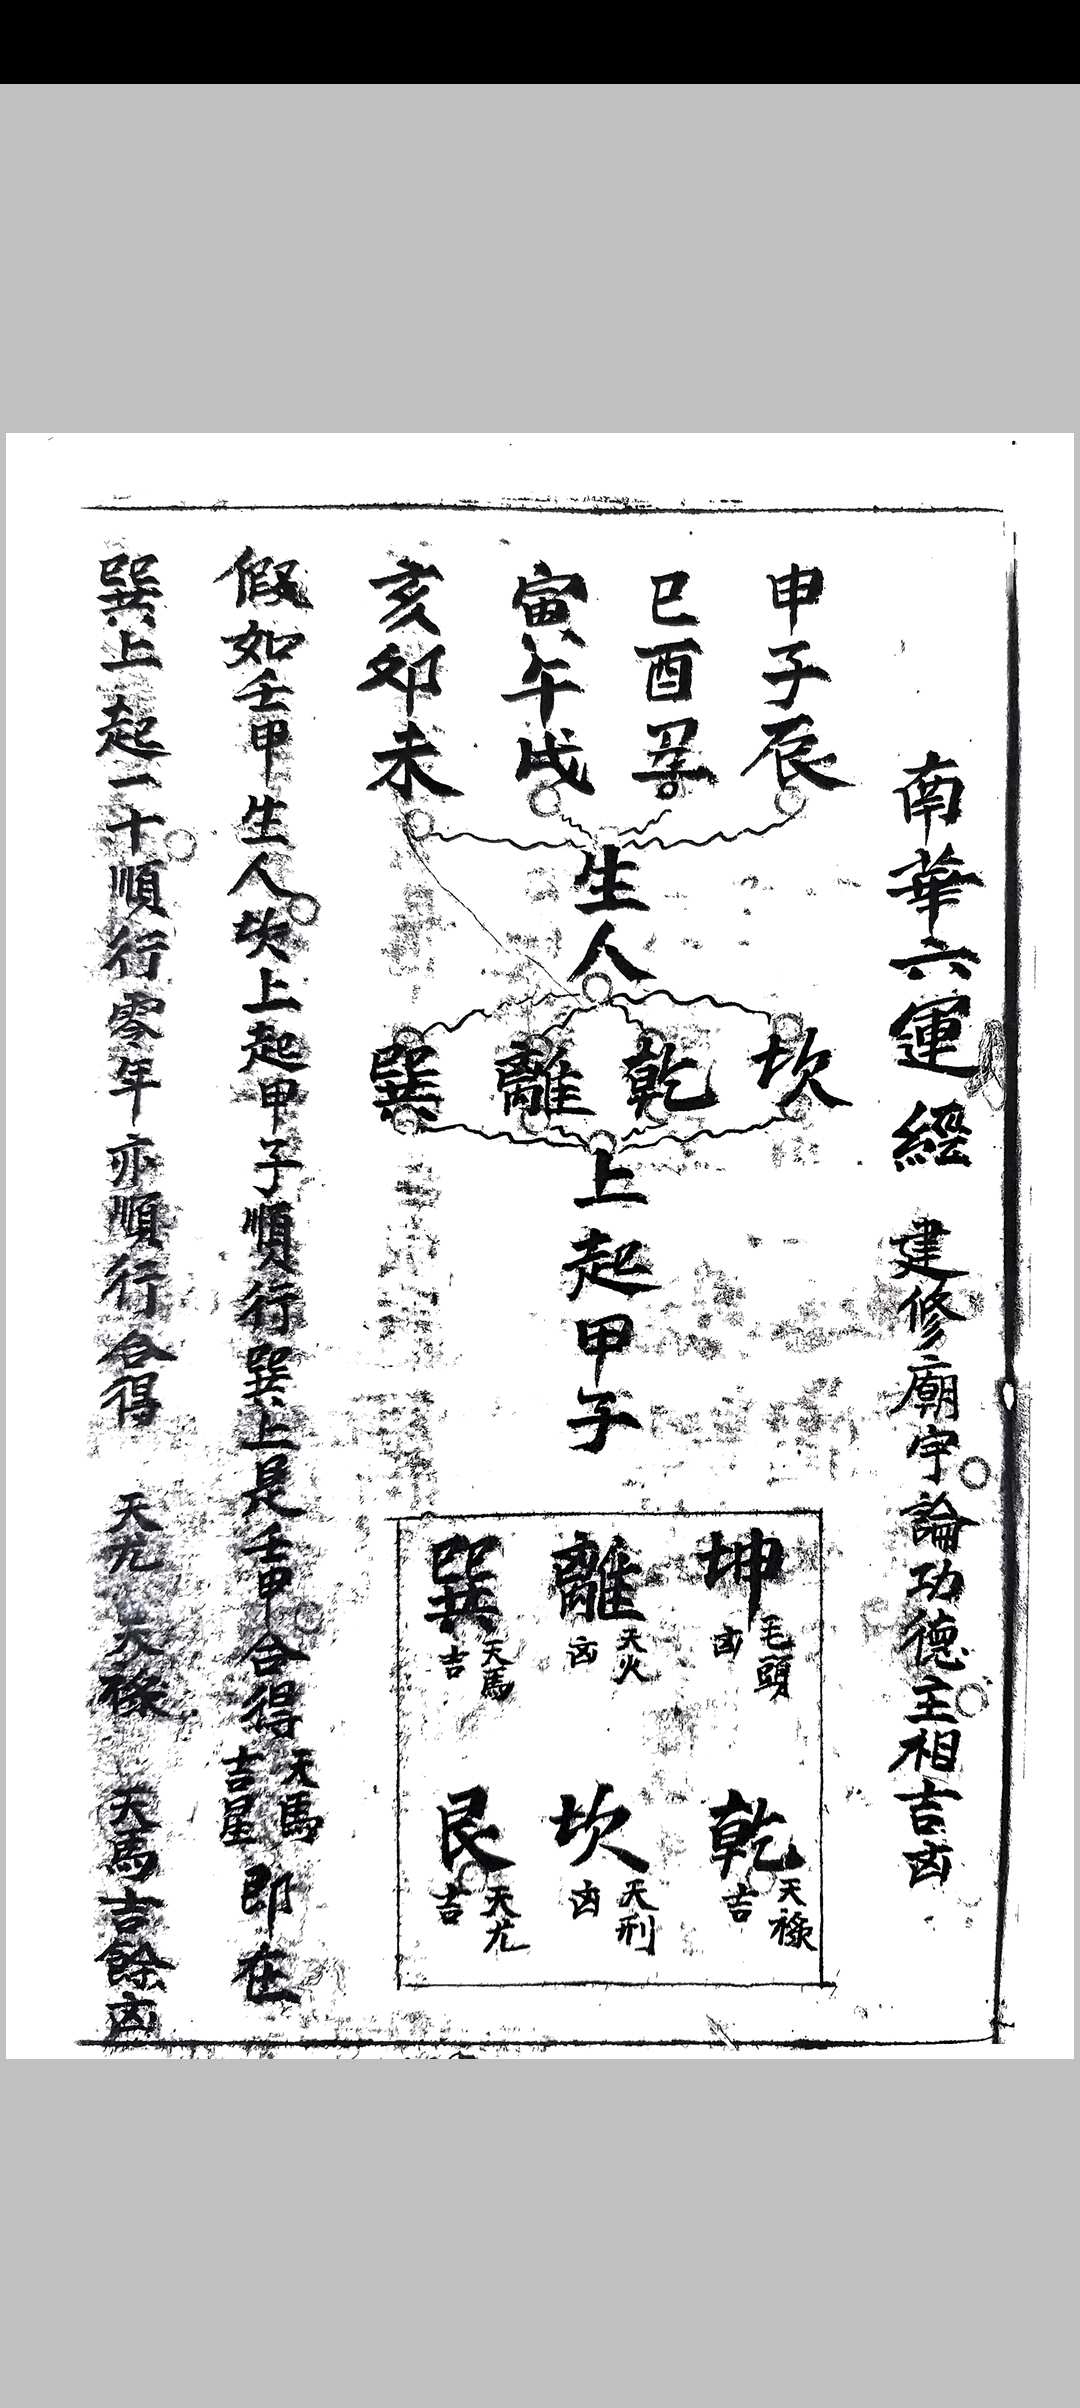 南華六運經　建修廟宇論功德主相吉凶
申子辰
巳酉丑
寅午戌
亥卯未
生人
坎
乾
離
巽
上起甲子
坤 毛頭凶
離 天火凶
巽 天馬吉
乾 天祿吉
坎 天刑凶
艮 天尤吉
假如壬申生人坎上起甲子順行巽上是壬申合得天馬吉星即在
巽上起一十順行零年亦順行合得　天尤　天祿　天馬吉餘凶